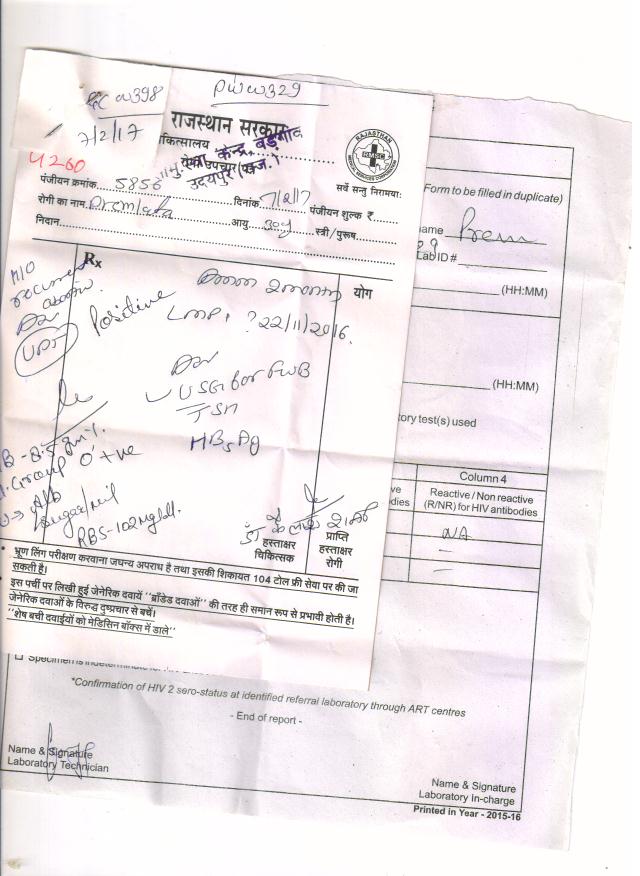 w398
PWW329
7/2/17
राजस्थान सरकार
4260
केन्द्र, बड़गांव
उदयपुर (राज.)
RAJASTHAN
MEDICAL SERVICES CORPORATION
RMSC
सर्वे सन्तु निरामयाः
पंजीयन क्रमांक 5856 दिनांक 7/2/17 पंजीयन शुल्क ₹
रोगी का नाम आयु 30y स्त्री/पुरुष
निदान
Rx
योग
H/O
2 months
UPT Positive
LMP : ? 22/11/2016.
USG for FWB
TSH
HBsAg
B - 8.5 gm%
Group O +ve
Alb
Sugar/nil
RBS - 102 mg/dl.
हस्ताक्षर
चिकित्सक
प्राप्ति
हस्ताक्षर
रोगी
• भ्रूण लिंग परीक्षण करवाना जघन्य अपराध है तथा इसकी शिकायत 104 टोल फ्री सेवा पर की जा
सकती है।
इस पर्ची पर लिखी हुई जेनेरिक दवायें "ब्रॉंडेड दवाओं" की तरह ही समान रूप से प्रभावी होती है।
जेनेरिक दवाओं के विरुद्ध दुष्प्रचार से बचें।
"शेष बची दवाईयों को मेडिसिन बॉक्स में डाले"
Form to be filled in duplicate)
ame Prem
Lab ID #
(HH:MM)
(HH:MM)
ory test(s) used
Column 4
ve
dies
Reactive / Non reactive
(R/NR) for HIV antibodies
NA
–
–
*Confirmation of HIV 2 sero-status at identified referral laboratory through ART centres
- End of report -
Name & Signature
Laboratory Technician
Name & Signature
Laboratory In-charge
Printed in Year - 2015-16